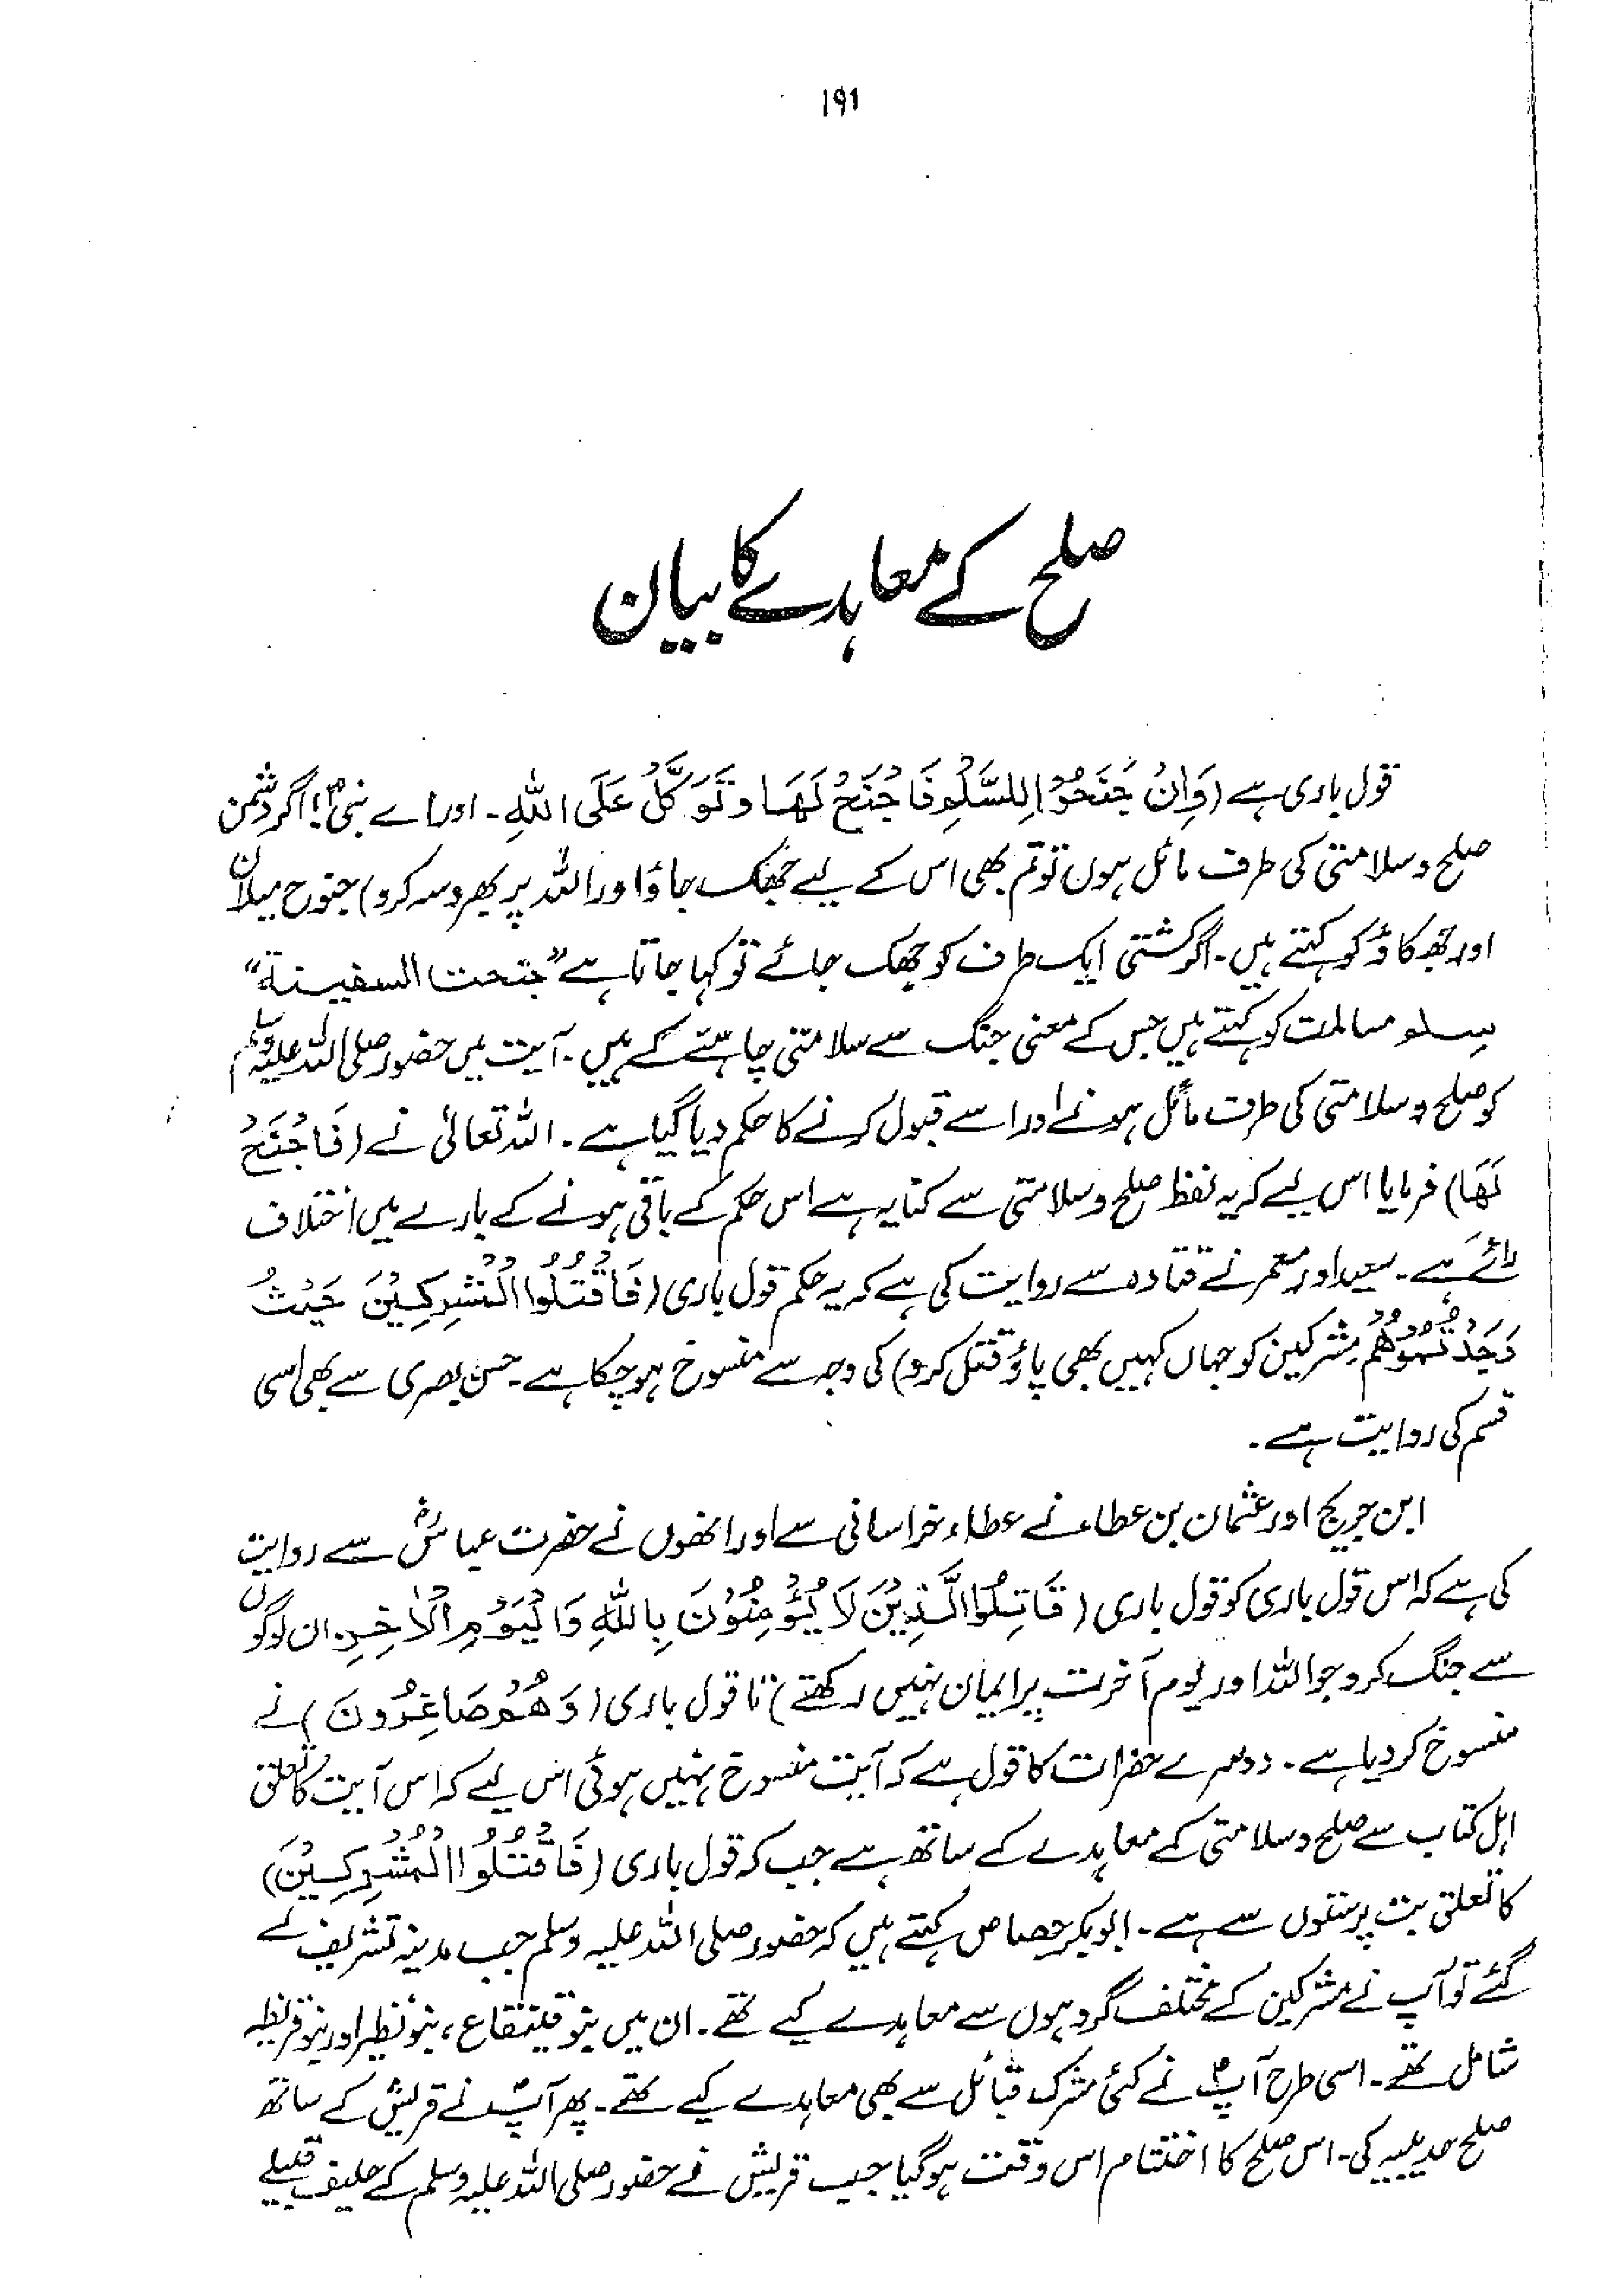 191
صلح کے معاہدے کا بیان
قول باری ہے (وَاِنْ جَنَحُوْا لِلسَّلْمِ فَاجْنَحْ لَهَا وَتَوَكَّلْ عَلَى اللهِ۔ اور اے نبیؐ! اگر دشمن
صلح و سلامتی کی طرف مائل ہوں تو تم بھی اس کے لیے جھک جاؤ اور اللہ پر بھروسہ کرو) جنوح میلان
اور جھکاؤ کو کہتے ہیں۔ اگر کشتی ایک طرف کو جھک جائے تو کہا جاتا ہے "جنحت السفینة"
سِلم مسالمت کو کہتے ہیں جس کے معنی جنگ سے سلامتی چاہنے کے ہیں۔ آیت میں حضور صلی اللہ علیہ وسلم
کو صلح و سلامتی کی طرف مائل ہونے اور اسے قبول کرنے کا حکم دیا گیا ہے۔ اللہ تعالیٰ نے (فَاجْنَحْ
لَهَا) فرمایا اس لیے کہ یہ لفظ صلح و سلامتی سے کنایہ ہے اس حکم کے باقی ہونے کے بارے میں اختلاف
رائے ہے۔ سعید اور معمر نے قتادہ سے روایت کی ہے کہ یہ حکم قول باری (فَاقْتُلُوا الْمُشْرِكِيْنَ حَيْثُ
وَجَدْتُمُوْهُمْ مشرکین کو جہاں کہیں بھی پاؤ قتل کرو) کی وجہ سے منسوخ ہو چکا ہے۔ حسن بصری سے بھی اسی
قسم کی روایت ہے۔
ابن جریج اور عثمان بن عطاء نے عطاء خراسانی سے اور انھوں نے حضرت عباسؓ سے روایت
کی ہے کہ اس قول باری کو قول باری (قَاتِلُوا الَّذِيْنَ لَا يُؤْمِنُوْنَ بِاللهِ وَالْيَوْمِ الْاٰخِرِ۔ ان لوگوں
سے جنگ کرو جو اللہ اور یوم آخرت پر ایمان نہیں رکھتے) تا قول باری (وَهُمْ صَاغِرُونَ) نے
منسوخ کر دیا ہے۔ دوسرے حضرات کا قول ہے کہ آیت منسوخ نہیں ہوئی اس لیے کہ اس آیت کا تعلق
اہل کتاب سے صلح و سلامتی کے معاہدے کے ساتھ ہے جب کہ قول باری (فَاقْتُلُوا الْمُشْرِكِيْنَ)
کا تعلق بت پرستوں سے ہے۔ ابوبکر جصاص کہتے ہیں کہ حضور صلی اللہ علیہ وسلم جب مدینہ تشریف لے
گئے تو آپ نے مشرکین کے مختلف گروہوں سے معاہدے کیے تھے۔ ان میں بنو قینقاع، بنو نظیر اور بنو قریظہ
شامل تھے۔ اسی طرح آپؐ نے کئی مشرک قبائل سے بھی معاہدے کیے تھے۔ پھر آپؐ نے قریش کے ساتھ
صلح حدیبیہ کی۔ اس صلح کا اختتام اس وقت ہوگیا جب قریش نے حضور صلی اللہ علیہ وسلم کے حلیف قبیلے